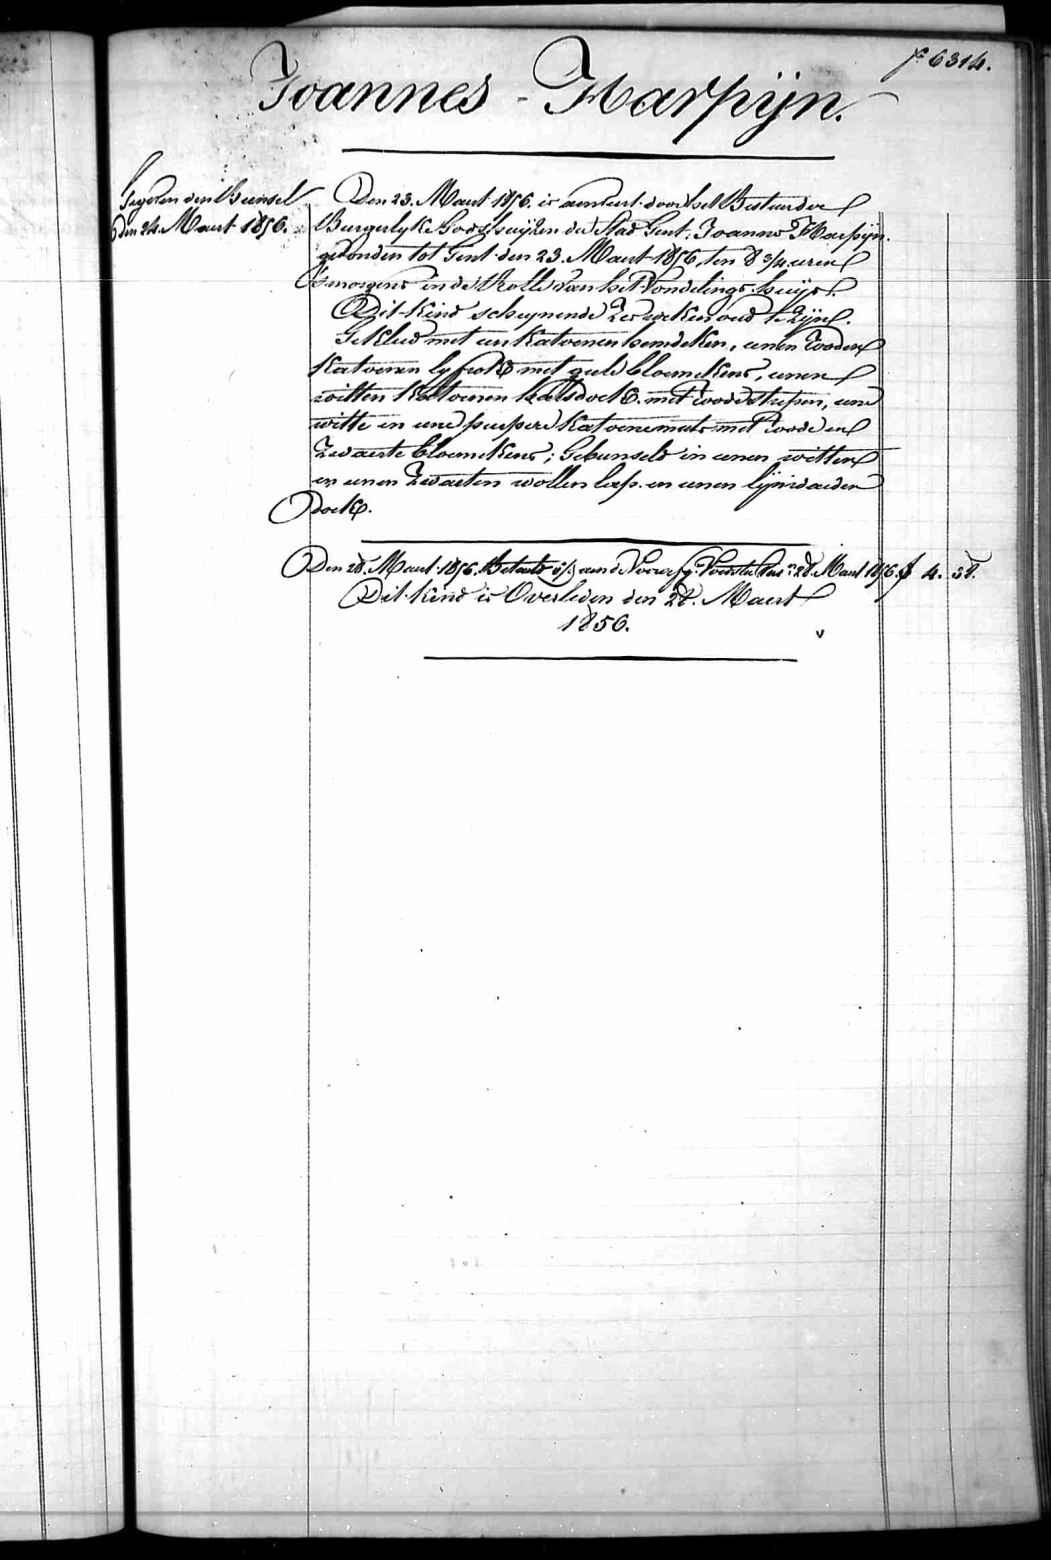 fº 6314.
Joannes - Harpijn.
Gegeven den Bunsel
den 24. Maert 1856.
Den 23. Maert 1856. is aenveert door het Bestuer der
Burgerlyke Godshuijzen der Stad Gent, Joannes Harpijn.
gevonden tot Gent den 23. Maert 1856, ten 8 3/4 uren
'smorgens in de Rolle van het Vondelings-huijs.
Dit kind schijnende Zes weken oud te Zijn.
Gekleed met een Katoenen hemdeken, eenen Rooden
Katoenen lyfrok met geele bloemekens, eenen
witten Katoenen halsdoek met Roode strepen, eene
witte en eene purpere Katoene muts met Roode en
Zwaerte bloemekens; Gebunseld in eenen witten
en eenen Zwaeten wollen lap. en eenen lijnwaeden
doek.
Den 28. Maert 1856. Betaeld aen d 28 Maert 1856. f 4. 38.
Dit kind is Overleden den 28. Maert
1856.
v